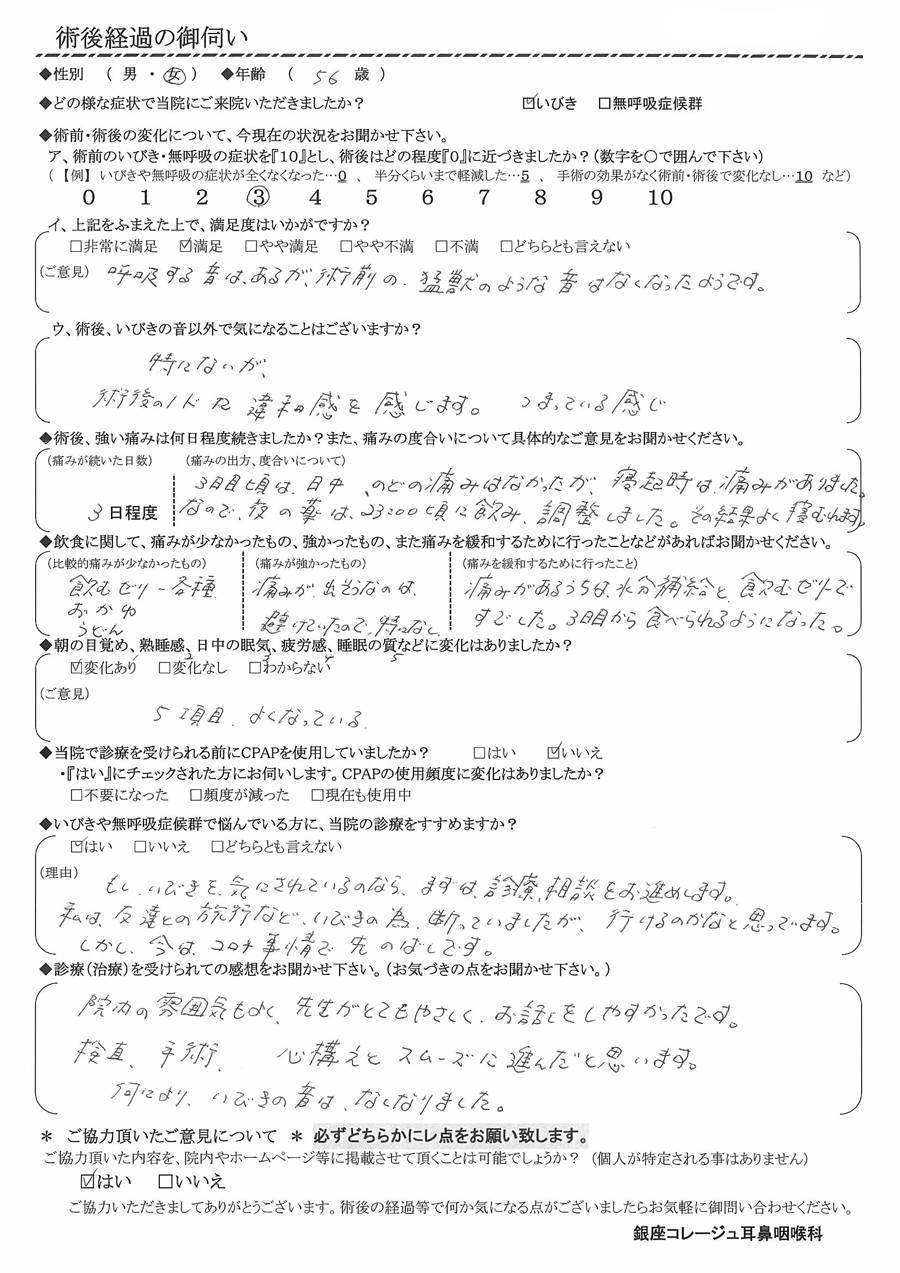 術後経過の御伺い
◆性別 （ 男 ・ 女 ） ◆年齢 （ 56 歳 ）
◆どの様な症状で当院にご来院いただきましたか？ ☑いびき □無呼吸症候群
◆術前・術後の変化について、今現在の状況をお聞かせ下さい。
ア、術前のいびき・無呼吸の症状を『10』とし、術後はどの程度『0』に近づきましたか？（数字を〇で囲んで下さい）
（ 【例】 いびきや無呼吸の症状が全くなくなった…0 、 半分くらいまで軽減した…5 、 手術の効果がなく術前・術後で変化なし…10 など）
0 1 2 ③ 4 5 6 7 8 9 10
イ、上記をふまえた上で、満足度はいかがですか？
□非常に満足 ☑満足 □やや満足 □やや不満 □不満 □どちらとも言えない
（ご意見） 呼吸する音は、あるが、術前の、猛獣のような音はなくなったようです。
ウ、術後、いびきの音以外で気になることはございますか？
特にないが、
術後のノドに違和感を感じます。 つまっている感じ
◆術後、強い痛みは何日程度続きましたか？また、痛みの度合いについて具体的なご意見をお聞かせください。
（痛みが続いた日数） （痛みの出方、度合いについて）
3日目頃は、日中、のどの痛みはなかったが、寝起時は、痛みがありました。
3 日程度 なので、夜の薬は、23:00頃に飲み、調整しました。その結果よく寝むれます。
◆飲食に関して、痛みが少なかったもの、強かったもの、また痛みを緩和するために行ったことなどがあればお聞かせください。
（比較的痛みが少なかったもの） （痛みが強かったもの） （痛みを緩和するために行ったこと）
飲むゼリー各種 痛みが、出そうなのは、 痛みがあるうちは、水分補給と、飲むゼリーで
おかゆ
うどん 避けていたので、特になし すごした。3日目から食べられるようになった。
◆朝の目覚め、熟睡感、日中の眠気、疲労感、睡眠の質などに変化はありましたか？
1 2 3 4 5
☑変化あり □変化なし □わからない
（ご意見）
5項目、よくなっている。
◆当院で診療を受けられる前にCPAPを使用していましたか？ □はい ☑いいえ
・『はい』にチェックされた方にお伺いします。CPAPの使用頻度に変化はありましたか？
□不要になった □頻度が減った □現在も使用中
◆いびきや無呼吸症候群で悩んでいる方に、当院の診療をすすめますか？
☑はい □いいえ □どちらとも言えない
（理由）
もし、いびきを、気にされているのなら、まずは、診療、相談をお進めします。
私は、友達との旅行など、いびきの為、断っていましたが、行けるのかなと思ってます。
しかし、今は、コロナ事情で先のばしです。
◆診療（治療）を受けられての感想をお聞かせ下さい。（お気づきの点をお聞かせ下さい。）
院内の雰囲気もよく、先生がとてもやさしく、お話しをしやすかったです。
検査、手術、心構えとスムーズに進んだと思います。
何により、いびきの音は、なくなりました。
＊ ご協力頂いたご意見について ＊ 必ずどちらかにレ点をお願い致します。
ご協力頂いた内容を、院内やホームページ等に掲載させて頂くことは可能でしょうか？ （個人が特定される事はありません）
☑はい □いいえ
ご協力いただきましてありがとうございます。術後の経過等で何か気になる点がございましたらお気軽に御問い合わせください。
銀座コレージュ耳鼻咽喉科